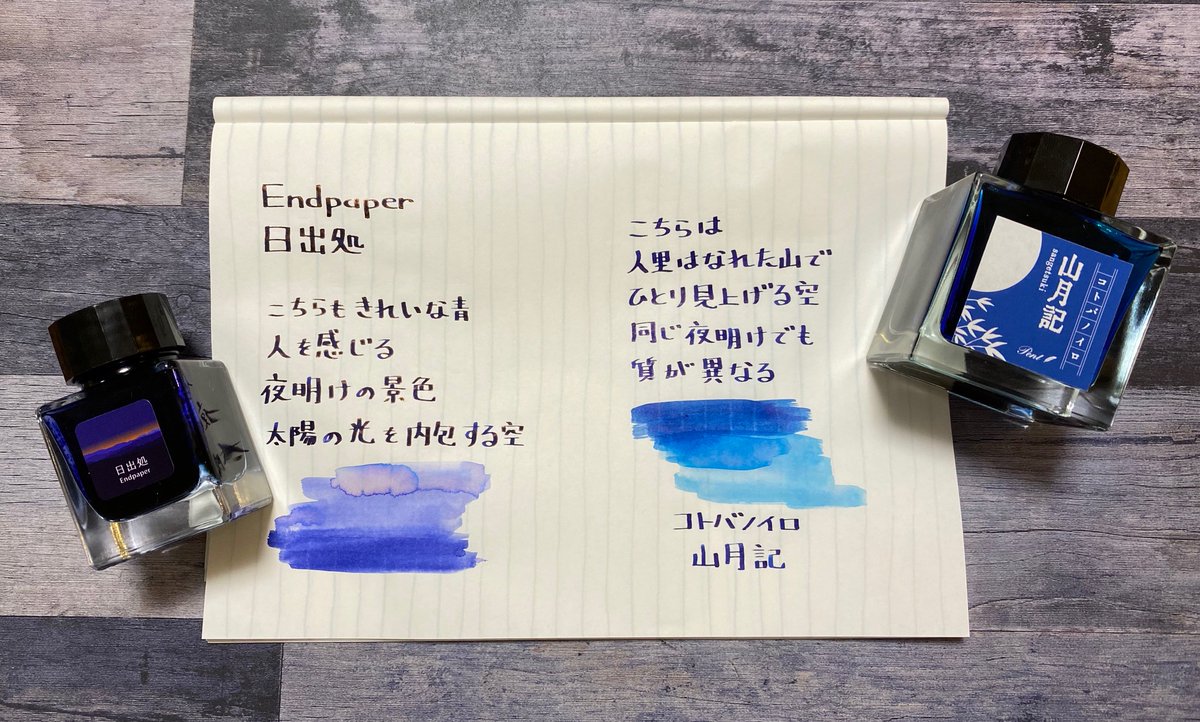 Endpaper
日出処
こちらもきれいな青
人を感じる
夜明けの景色
太陽の光を内包する空
こちらは
人里はなれた山で
ひとり見上げる空
同じ夜明けでも
質が異なる
コトバノイロ
山月記
日出処
Endpaper
コトバノイロ
山月記
sangetsuki